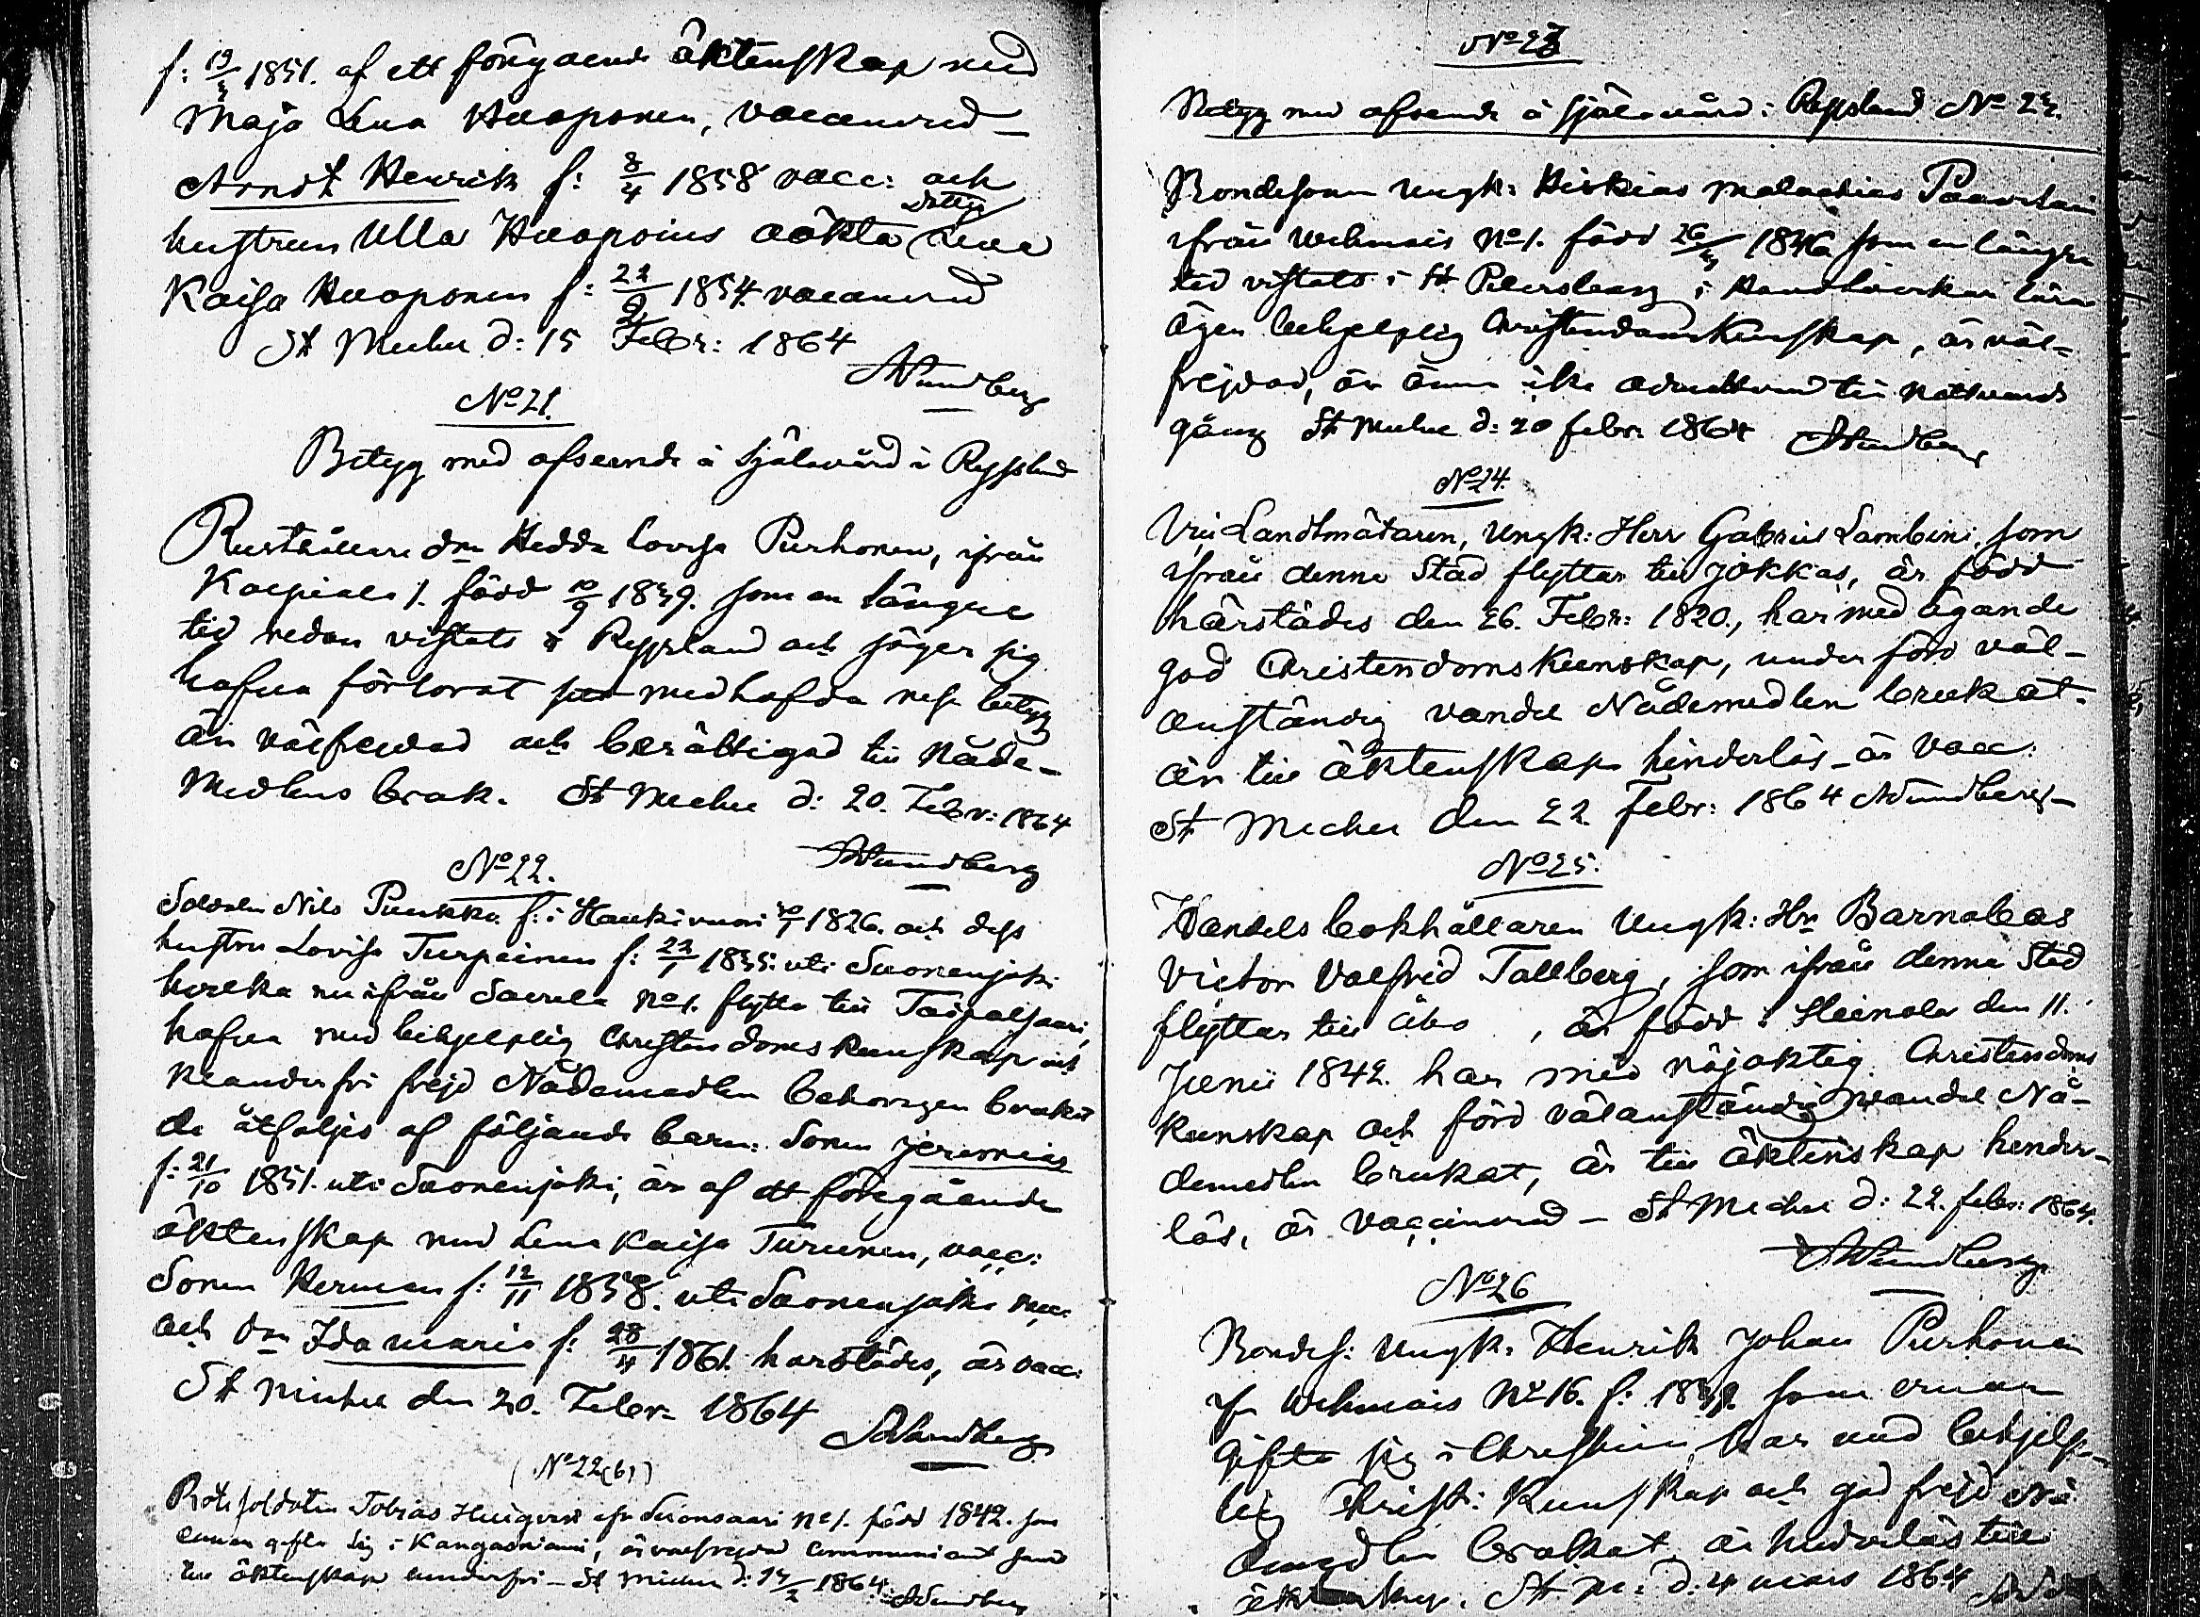 f: 19/3 1851. af ett föregående äktenskap med
Maja Lena Haaponen, vaccinerad –
Arndt Henrik f: 8/4 1858 vacc: och
hustrun Ulla Haapoius oäkta dotter Lena
Kaisa Haaponen f: 22/2 1854 vaccinerad
St Michel d: 15 Febr: 1864
AWundberg
No 21.
Betyg med afseende å själavård i Ryssland
Rusthållare dn Hedda Lovisa Purhonen, ifrån
Karpiala 1. född 10/9 1839. som en längre
tid redan vistats i Ryssland och säger sig
hafva förlorat medhafda rese betyg
är välfrejdad och berättigad till Nåde-
Medlens bruk. St Michel d: 20. Febr: 1864
AWundberg
No 22.
Soldaten Nils Puukka f: i Haukivuori 10/1 1826. och dess
hustru Lovisa Turpeinen f: 22/1 1835. uti Suonenjoki
hvilka nu ifrån Saerela No 1. flytta till Taipalsaari,
hafva med behjelplig Christendoms kunskap och
klanderfri frejd Nådemedlen behörigen brukat
de åtföljes af följande barn: Sonen Jeremias
f: 21/10 1851. uti Suonenjoki, är af ett föregående
äktenskap med Lena Kaisa Turunen, vacc:
Sonen Herman f: 12/11 1858. uti Suonenjoki vacc
och dn Ida Maria f: 28/4 1861. härstädes, är vacc:
St Michel den 20. Febr: 1864
AWundberg
(No 22 (b))
Rote soldaten Tobias Huigvist ifr Suonsaari No 1. född 1842. som
ernar gifta sig i Kangasniemi, är välfrejdad Communicant samt
till äktenskap hinderfri – St Michel d: 14/2 1864. AWundberg
No 23
Betyg med afseende å själavård i Ryssland No 22.
Bondesonen Ungk: Hiskias Malachias Paavilain
ifrån Wehmais No 1. född 26/3 1846 som en längre
tid vistats i St Petersburg i Handtverkeri lära
ägen behjelplig Christendomskunskap, är väl-
frejdad, är ännu icke admitterad till Nattvards
gång St Michel d: 20 febr. 1864 AWundberg
No 24.
Vice Landtmätaren, Ungk: Herr Gabriel Lambini, som
ifrån denne Stad flyttar till Jokkas, är född
härstädes den 26. Febr: 1820., har med ägande
god Christendoms Kunskap, under förd väl-
anständig vandel Nådemedlen brukat.
är till äktenskap hinderlös – är vacc:
St Michel den 22 Febr: 1864 AWundberg –
No 25.
Handels bokhållaren Ungk: Hr Barnabas
Victor Valfrid Tallberg, som ifrån denne Stad
flyttar till Åbo, är född i Heinola den 11.
Junii 1842. har med nöjaktig Christendoms
kunskap och förd välanständig vandel Nå-
demedlen brukat, är till äktenskap hinder-
lös, är vaccinerad – St Michel d: 22. febr: 1864.
AWundberg
No 26
Bondes: Ungk: Henrik Johan Purhonen
ifr Wehmais No 16. f: 1839. som ernar
gifta sig i Christina, har med behjelp-
lig Christ: Kunskap och god frejd Nå-
demedlen brukat, är hinderlös till
äktenskap. St M: d: 4 mars 1864